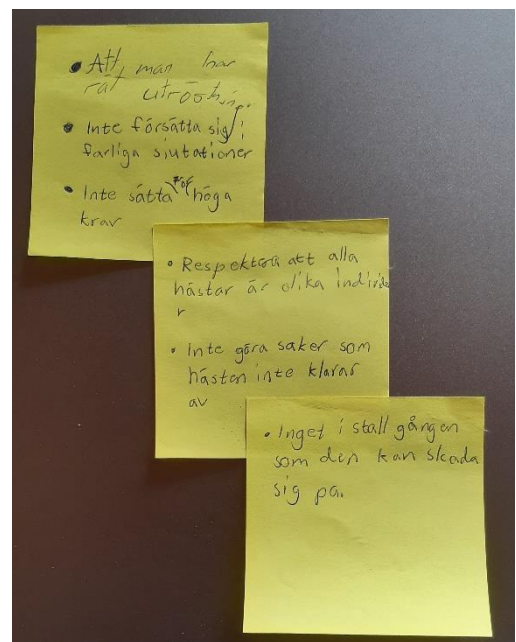 • Att man har
rät utröstning.
• Inte försätta sig i
farliga sjutationer
• Inte sätta för höga
krav
• Respektera att alla
hästar är olika individe
r
• Inte göra saker som
hästen inte klarar
av
• Inget i stall gången
som den kan skada
sig på.